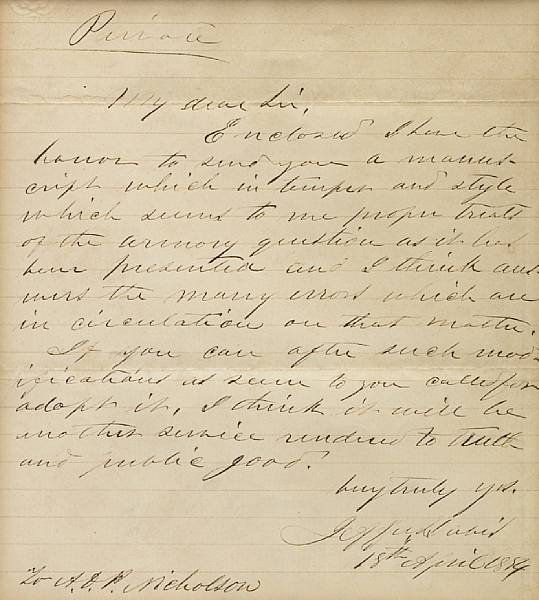 Private
My dear Sir,
Enclosed I have the
honor to send you a manus-
cript which in temper and style
which seems to me proper treats
of the armory question as it has
been presented and I think ans-
wers the many errors which are
in circulation on that matter.
If you can after such mod-
ifications as seem to you called for
adopt it, I think it will be
another service rendered to truth
and public good.
very truly yrs.
Jeffn. Davis
18th April 1854
To A.O.P. Nicholson